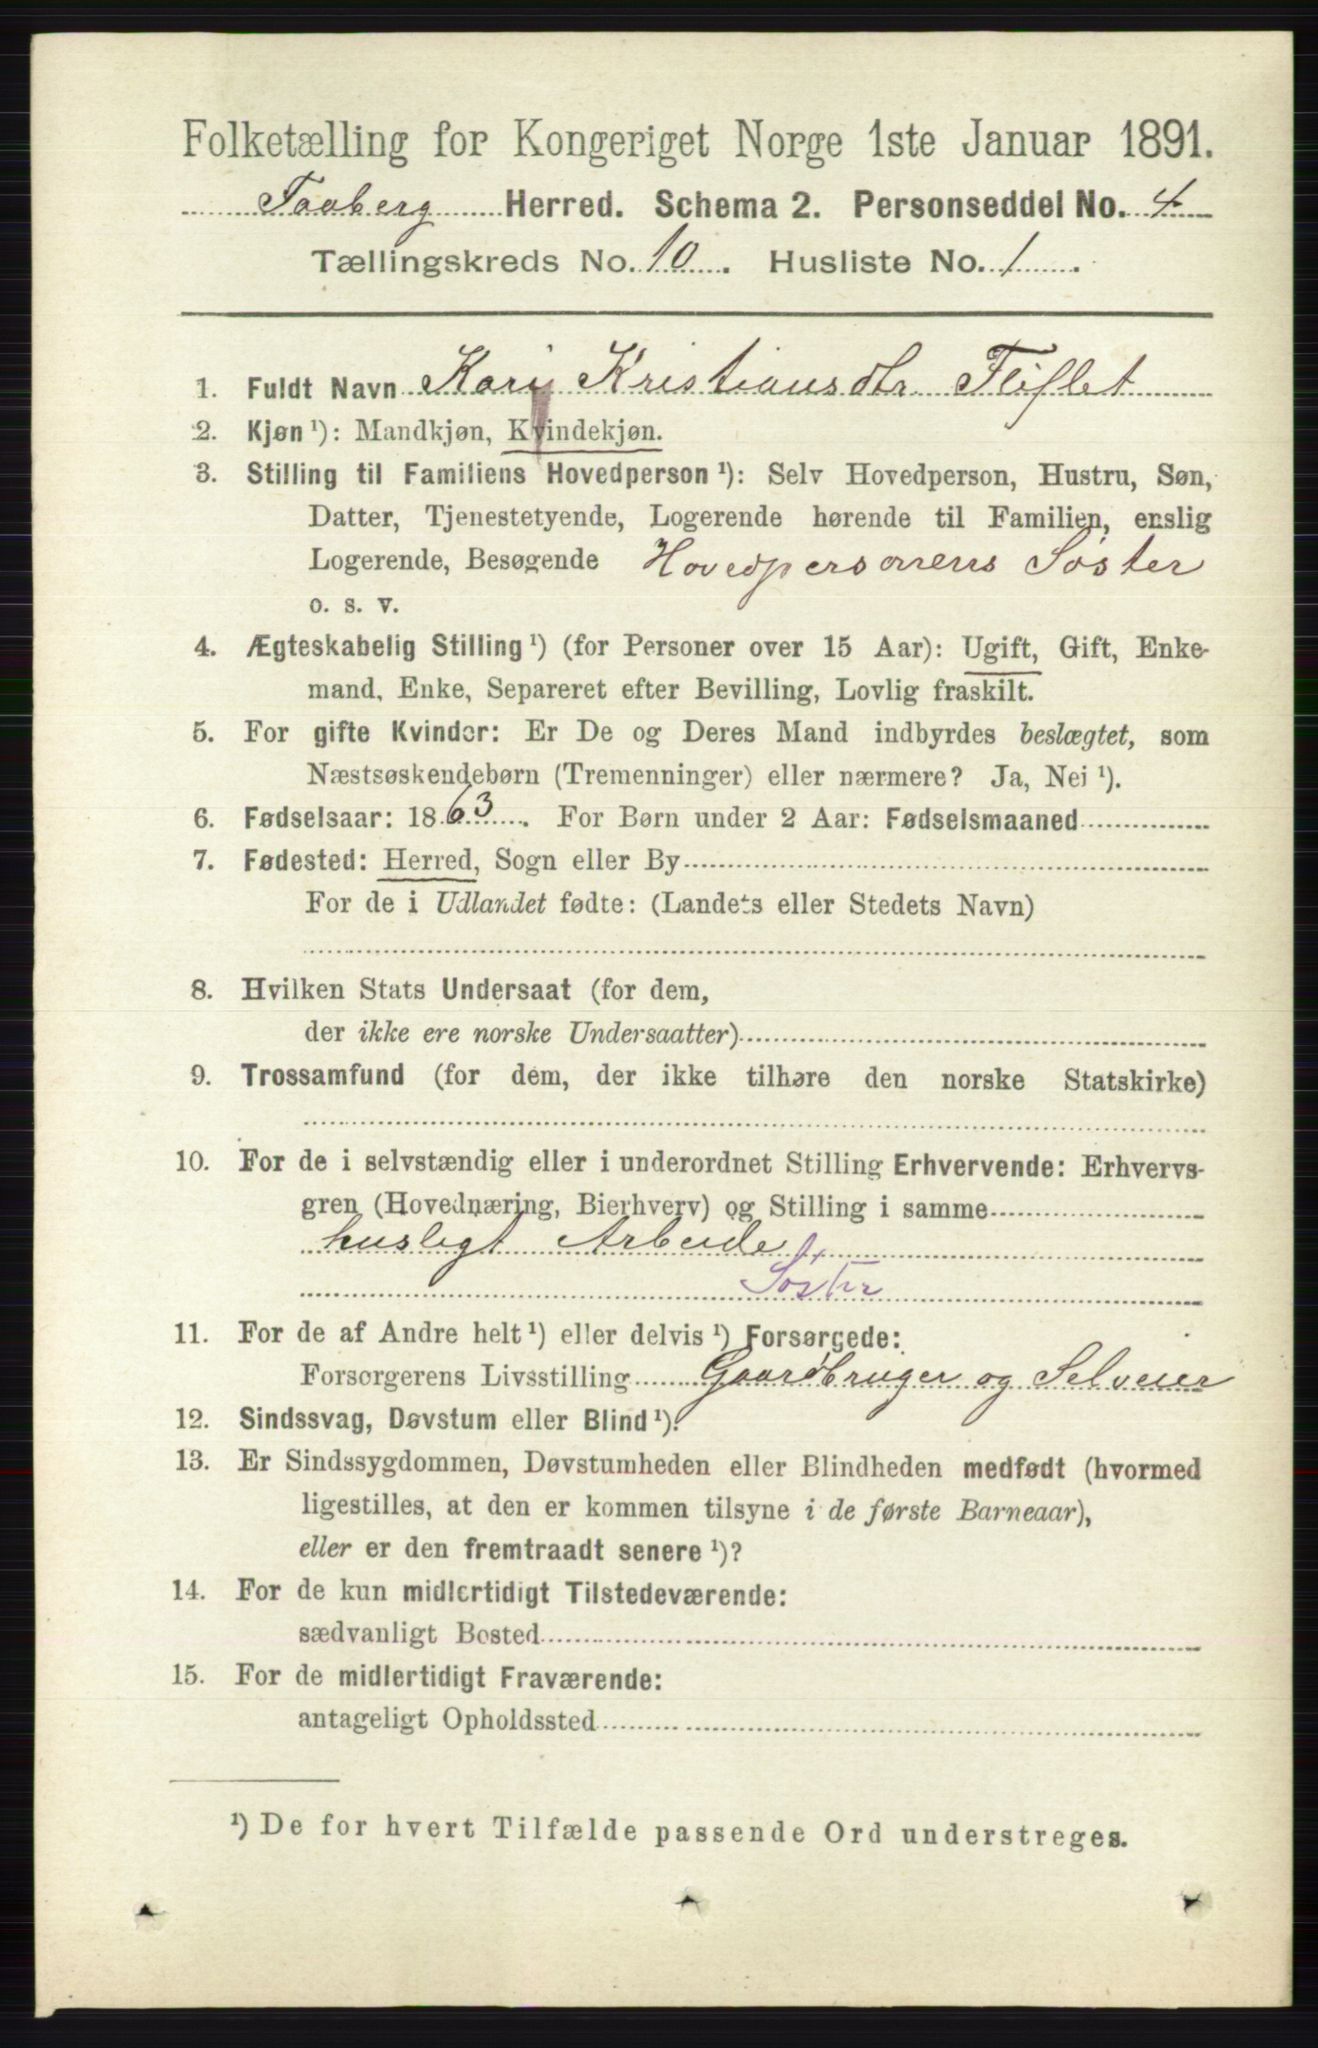 Folketælling for Kongeriget Norge 1ste Januar 1891.
Faaberg Herred. Schema 2. Personseddel No. 4
Tællingskreds No. 10. Husliste No. 1.
1. Fuldt Navn Kari Kristiansdtr. Fliflet
2. Kjøn ¹): Mandkjøn, Kvindekjøn.
3. Stilling til Familiens Hovedperson ¹): Selv Hovedperson, Hustru, Søn,
Datter, Tjenestetyende, Logerende hørende til Familien, enslig
Logerende, Besøgende Hovedpersonens Søster
o. s. v.
4. Ægteskabelig Stilling ¹) (for Personer over 15 Aar): Ugift, Gift, Enke-
mand, Enke, Separeret efter Bevilling, Lovlig fraskilt.
5. For gifte Kvinder: Er De og Deres Mand indbyrdes beslægtet, som
Næstsøskendebørn (Tremenninger) eller nærmere? Ja, Nei ¹).
6. Fødselsaar: 1863. For Børn under 2 Aar: Fødselsmaaned
7. Fødested: Herred, Sogn eller By
For de i Udlandet fødte: (Landets eller Stedets Navn)
8. Hvilken Stats Undersaat (for dem,
der ikke ere norske Undersaatter)
9. Trossamfund (for dem, der ikke tilhøre den norske Statskirke)
10. For de i selvstændig eller i underordnet Stilling Erhvervende: Erhvervs-
gren (Hovednæring, Bierhverv) og Stilling i samme
husligt Arbeide
Søster
11. For de af Andre helt ¹) eller delvis ¹) Forsørgede:
Forsørgerens Livsstilling Gaardbruger og Selveier
12. Sindssvag, Døvstum eller Blind ¹).
13. Er Sindssygdommen, Døvstumheden eller Blindheden medfødt (hvormed
ligestilles, at den er kommen tilsyne i de første Barneaar),
eller er den fremtraadt senere ¹)?
14. For de kun midlertidigt Tilstedeværende:
sædvanligt Bosted
15. For de midlertidigt Fraværende:
antageligt Opholdssted
¹) De for hvert Tilfælde passende Ord understreges.